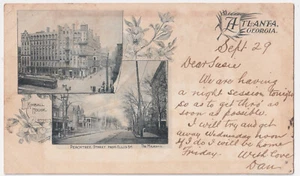 Atlanta,
Georgia.
Sept 29
Dear Susie
We are having
a night session tonight
so as to get thro' as
soon as possible.
I will try and get
away Wednesday noon
if I do I will be home
Friday.
With love
Dan
Kimball
House.
Peachtree Street from Ellis St.